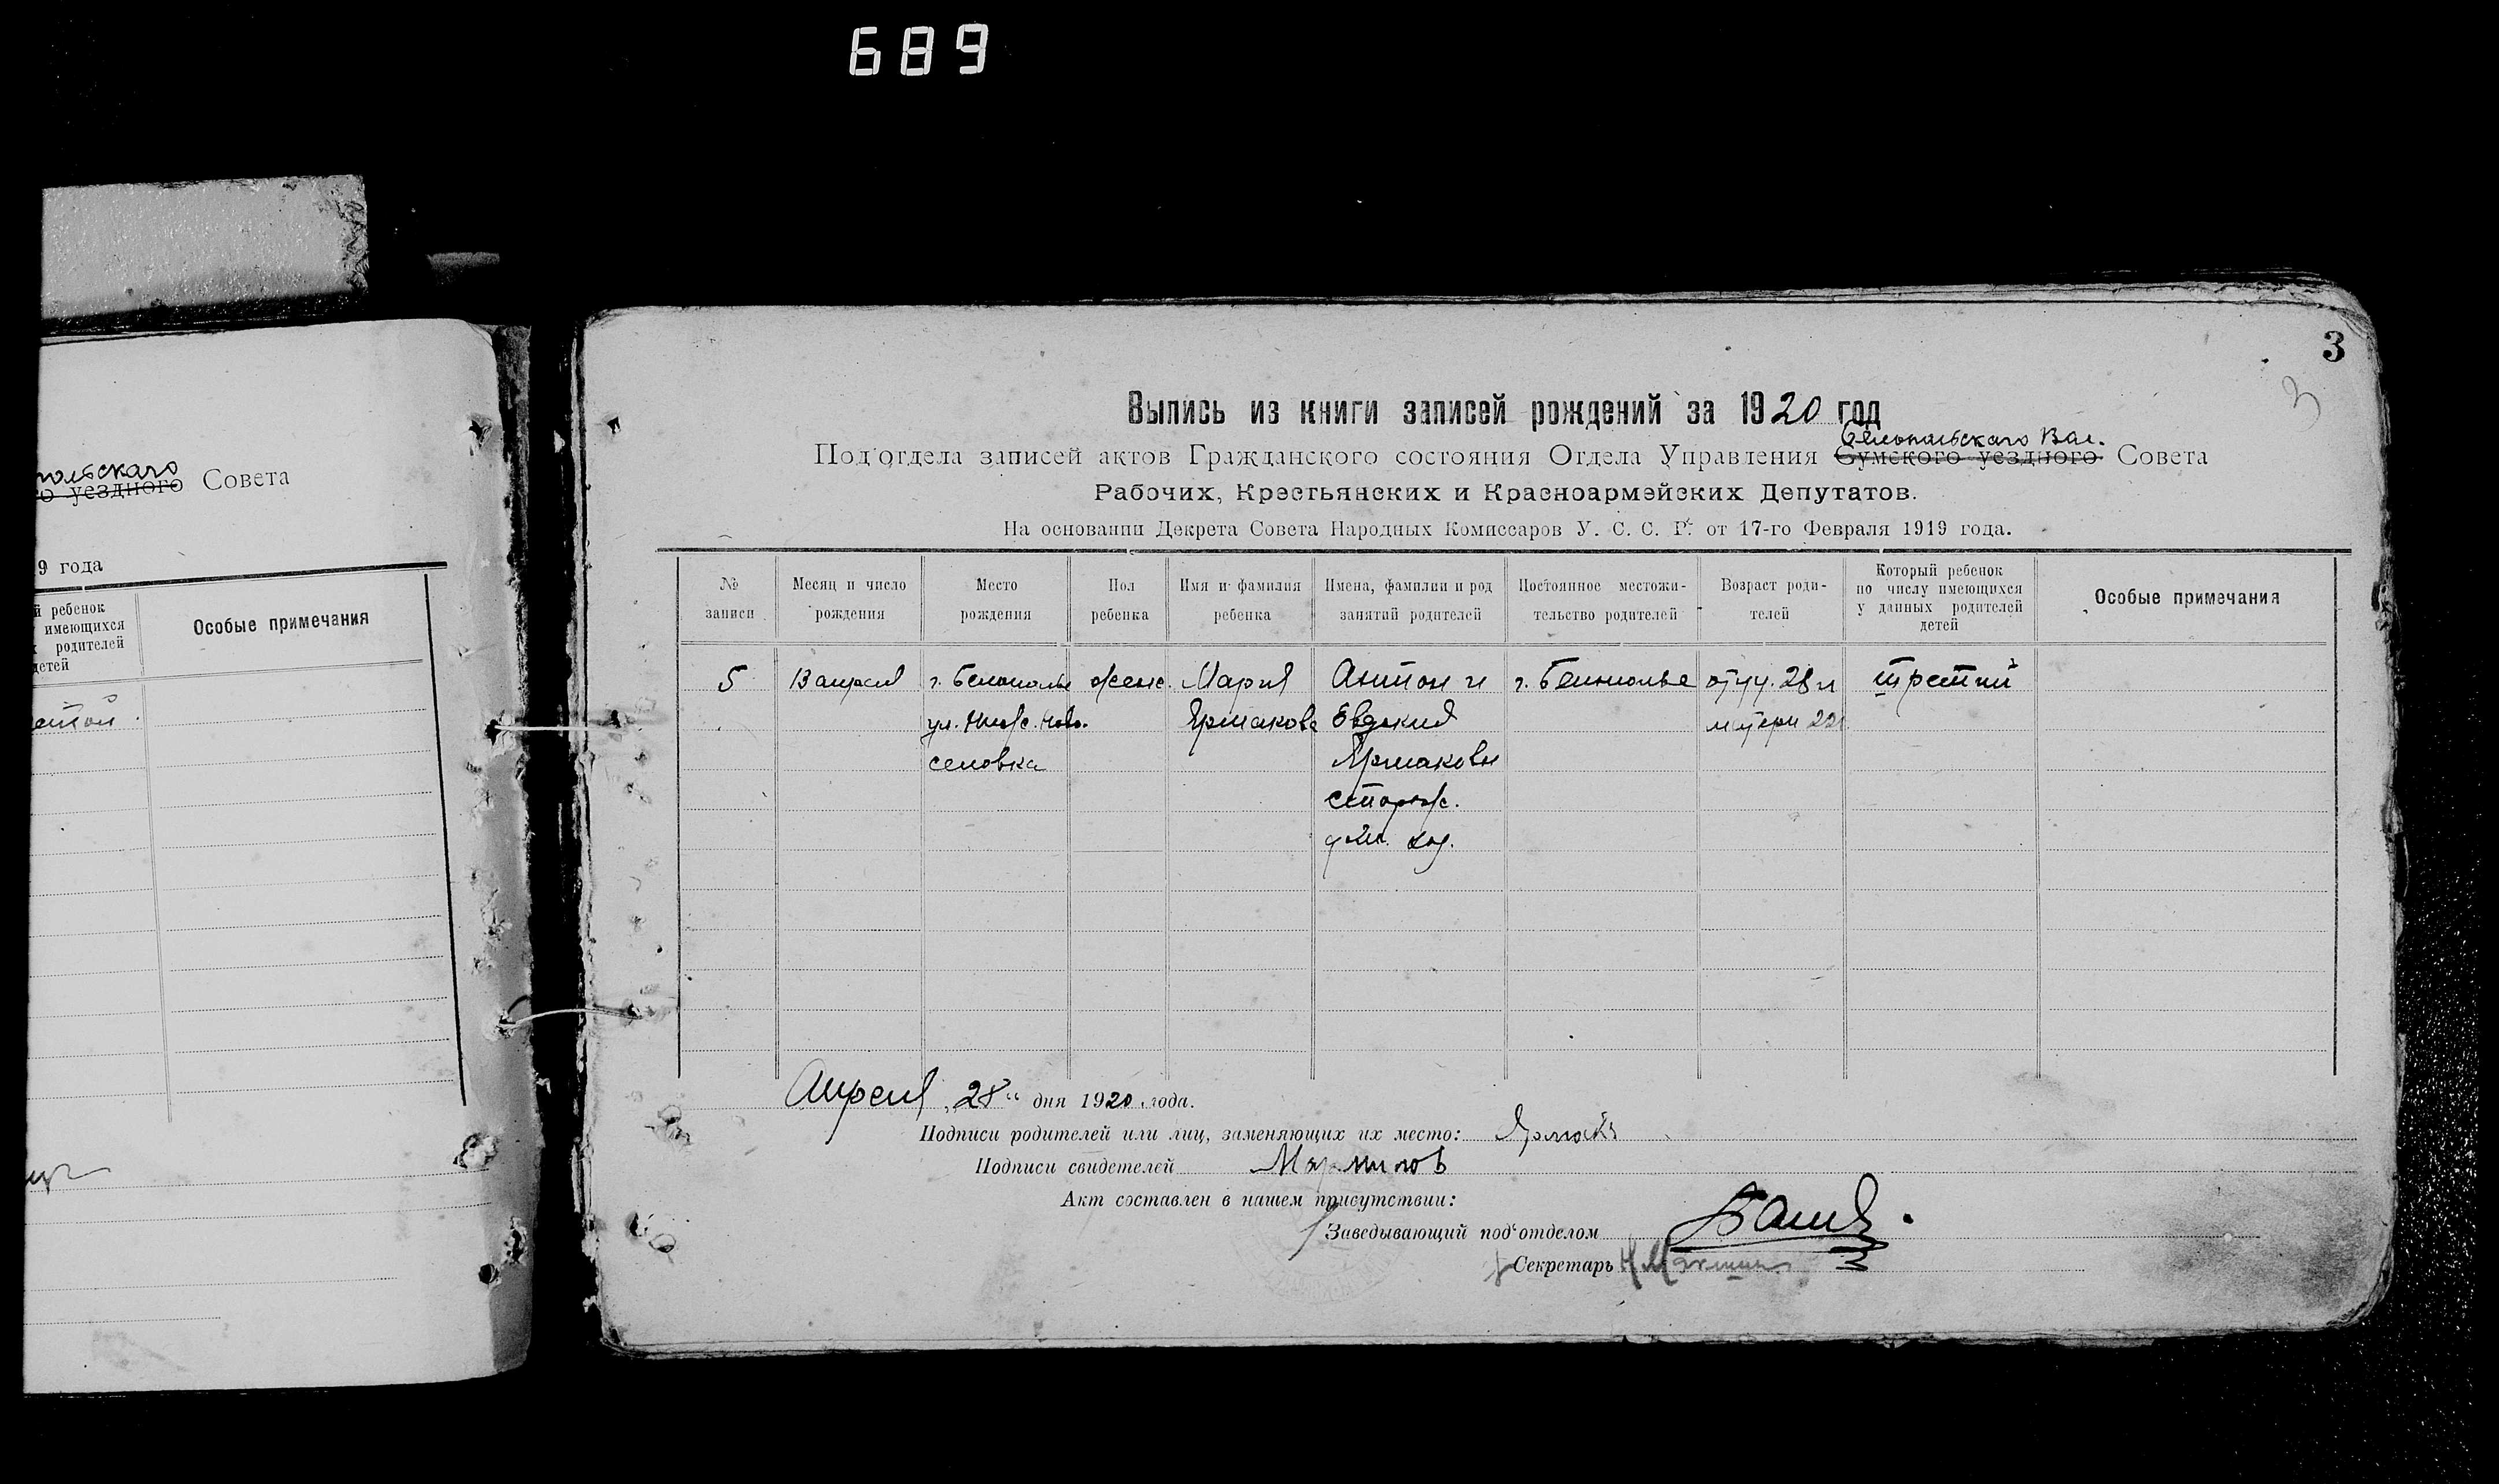 689
польскаго
о уездного Совета
9 года
й ребенок
имеющихся
х родителей
детей
Особые примечания
3
3
Выпись из книги записей рождений за 1920 год
Белопольскаго Вол.
Под'отдела записей актов Гражданского состояния Отдела Управления Сумского уездного Совета
Рабочих, Крестьянских и Красноармейских Депутатов.
На основании Декрета Совета Народных Комиссаров У. С. С. Р. от 17-го Февраля 1919 года.
№ записи
Месяц и число рождения
Место рождения
Пол ребенка
Имя и фамилия ребенка
Имена, фамилии и род занятий родителей
Постоянное местожи-тельство родителей
Возраст роди-телей
Который ребенок по числу имеющихся у данных родителей детей
Особые примечания
5 13 апреля г. Белополье женс. Мария Антон и г. Белополье отцу 28 л третий
ул. Ниж. Ново- Ермакова Евдокия матери 22
селовка Ермаковы
сторож.
дом. хоз.
Апреля „28“ дня 1920 года.
Подписи родителей или лиц, заменяющих их место:
Подписи свидетелей
Акт составлен в нашем присутствии:
Заведывающий под'отделом
Секретарь